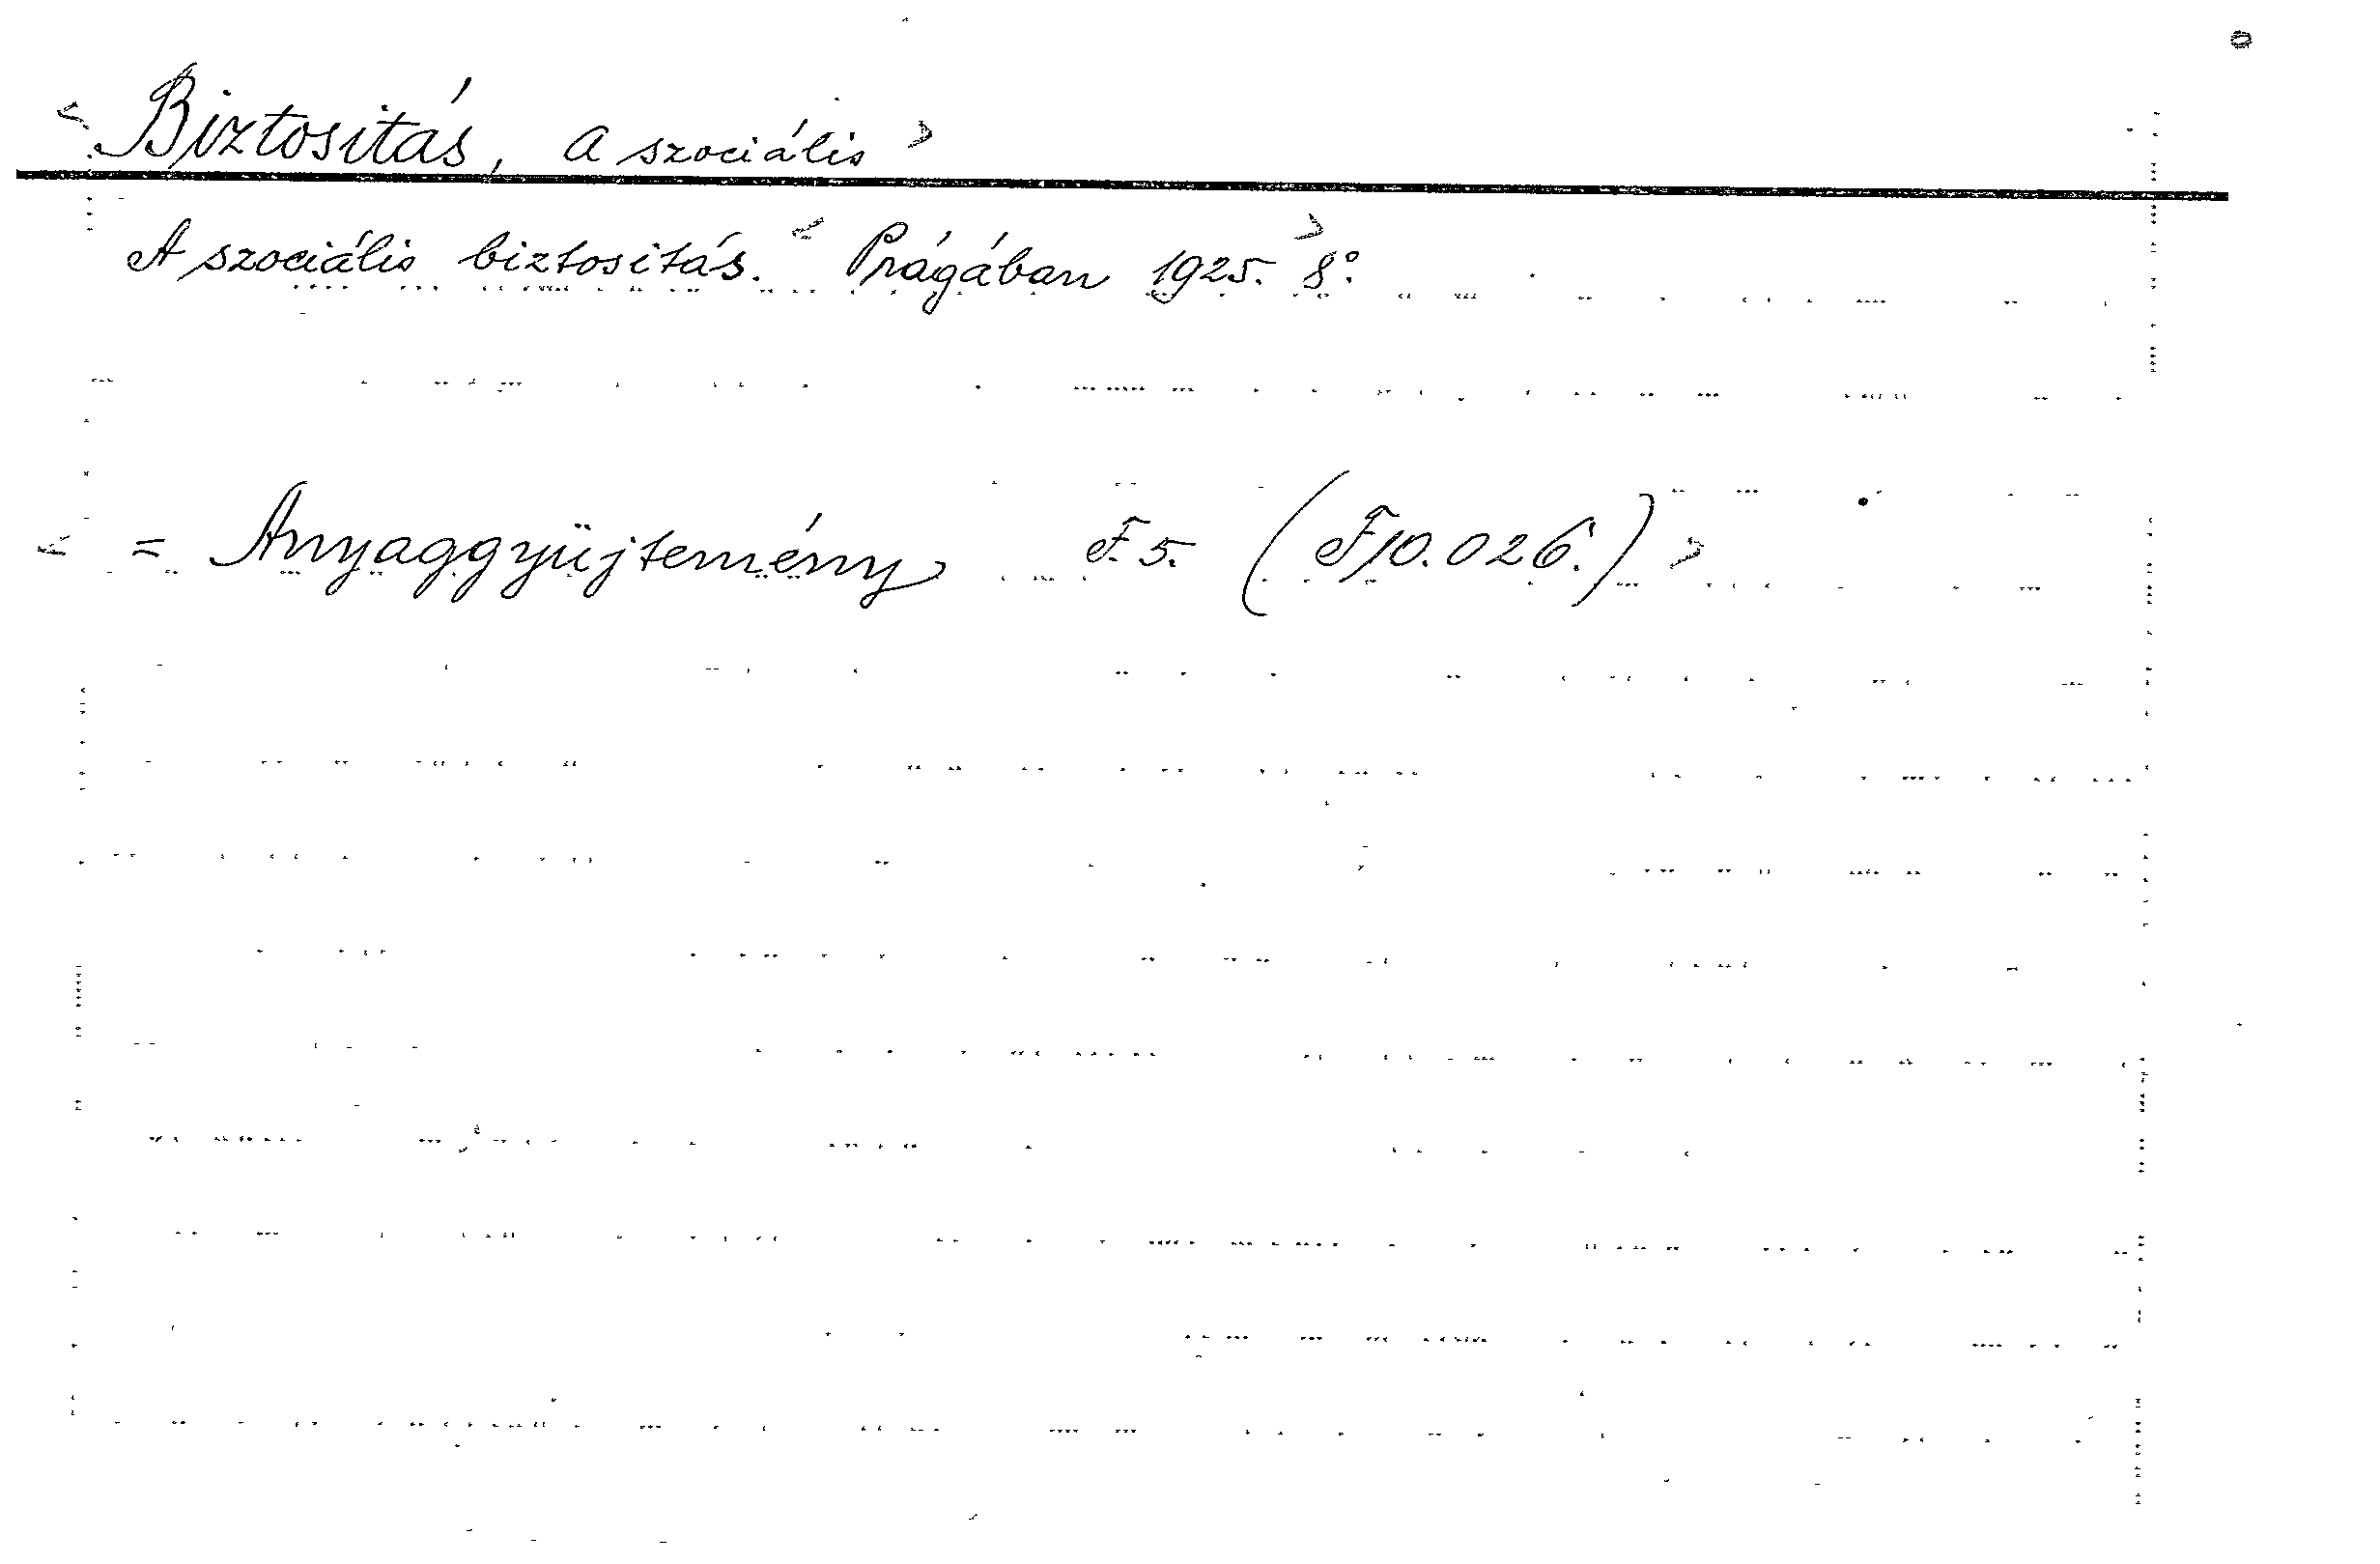 < Biztositás, a szociális >
A szociális biztositás. < Prágában 1925. > 8°.
< = Anyaggyüjtemény F. 5. (F10.026.) >